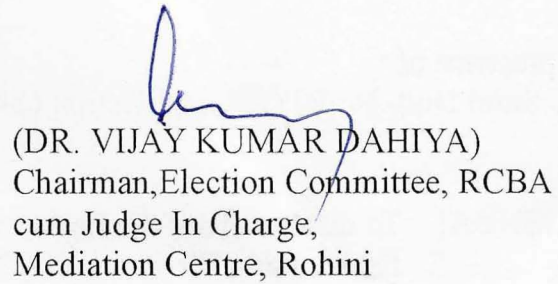 (DR. VIJAY KUMAR DAHIYA)
Chairman,Election Committee, RCBA
cum Judge In Charge,
Mediation Centre, Rohini